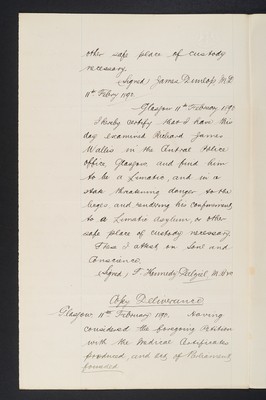 other safe place of custody
necessary.
(Signed) James Dunlop M.D.
11th Febry 1892
Glasgow 11th February 1892
I hereby certify that I have this
day examined Richard James
Wallis in the Central Police
Office, Glasgow and find him
to be a Lunatic, and in a
state threatening danger to the
lieges and rendering his confinement
to a Lunatic Asylum, or other
safe place of custody necessary.
These I attest on Soul and
Conscience.
(Signed) F. Kennedy M.
Copy Deliverance
Glasgow 11th February 1892. Having
considered the foregoing Petition
with the Medical Certificates
produced, and Act of Parliament
founded